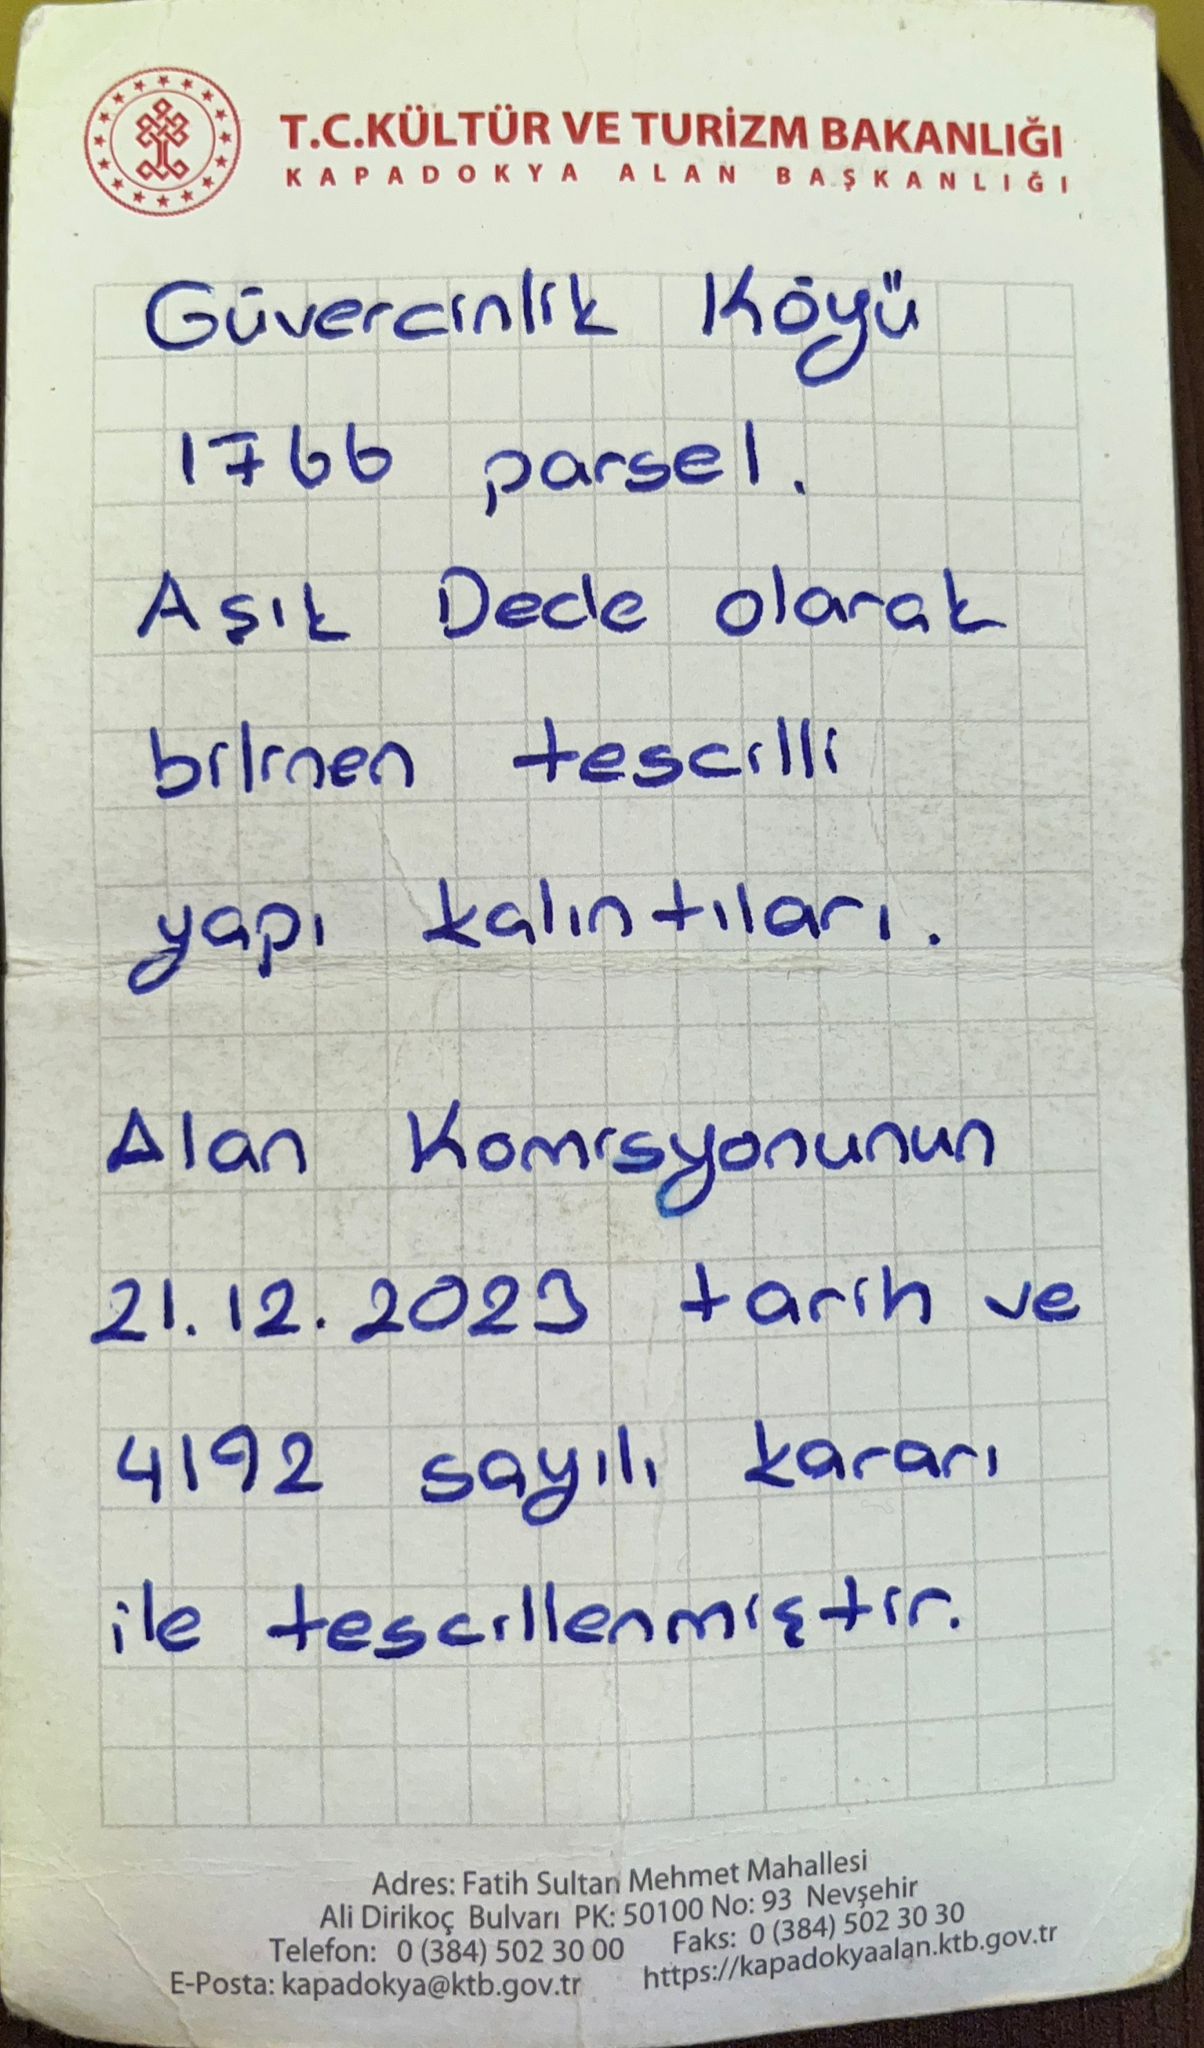 T.C.KÜLTÜR VE TURİZM BAKANLIĞI
KAPADOKYA ALAN BAŞKANLIĞI
Güvercinlik Köyü
1766 parsel.
Aşık Dede olarak
bilinen tescilli
yapı kalıntıları.
Alan Komisyonunun
21.12.2023 tarih ve
4192 sayılı kararı
ile tescillenmiştir.
Adres: Fatih Sultan Mehmet Mahallesi
Ali Dirikoç Bulvarı PK: 50100 No: 93 Nevşehir
Telefon: 0 (384) 502 30 00 Faks: 0 (384) 502 30 30
E-Posta: kapadokya@ktb.gov.tr https://kapadokyaalan.ktb.gov.tr